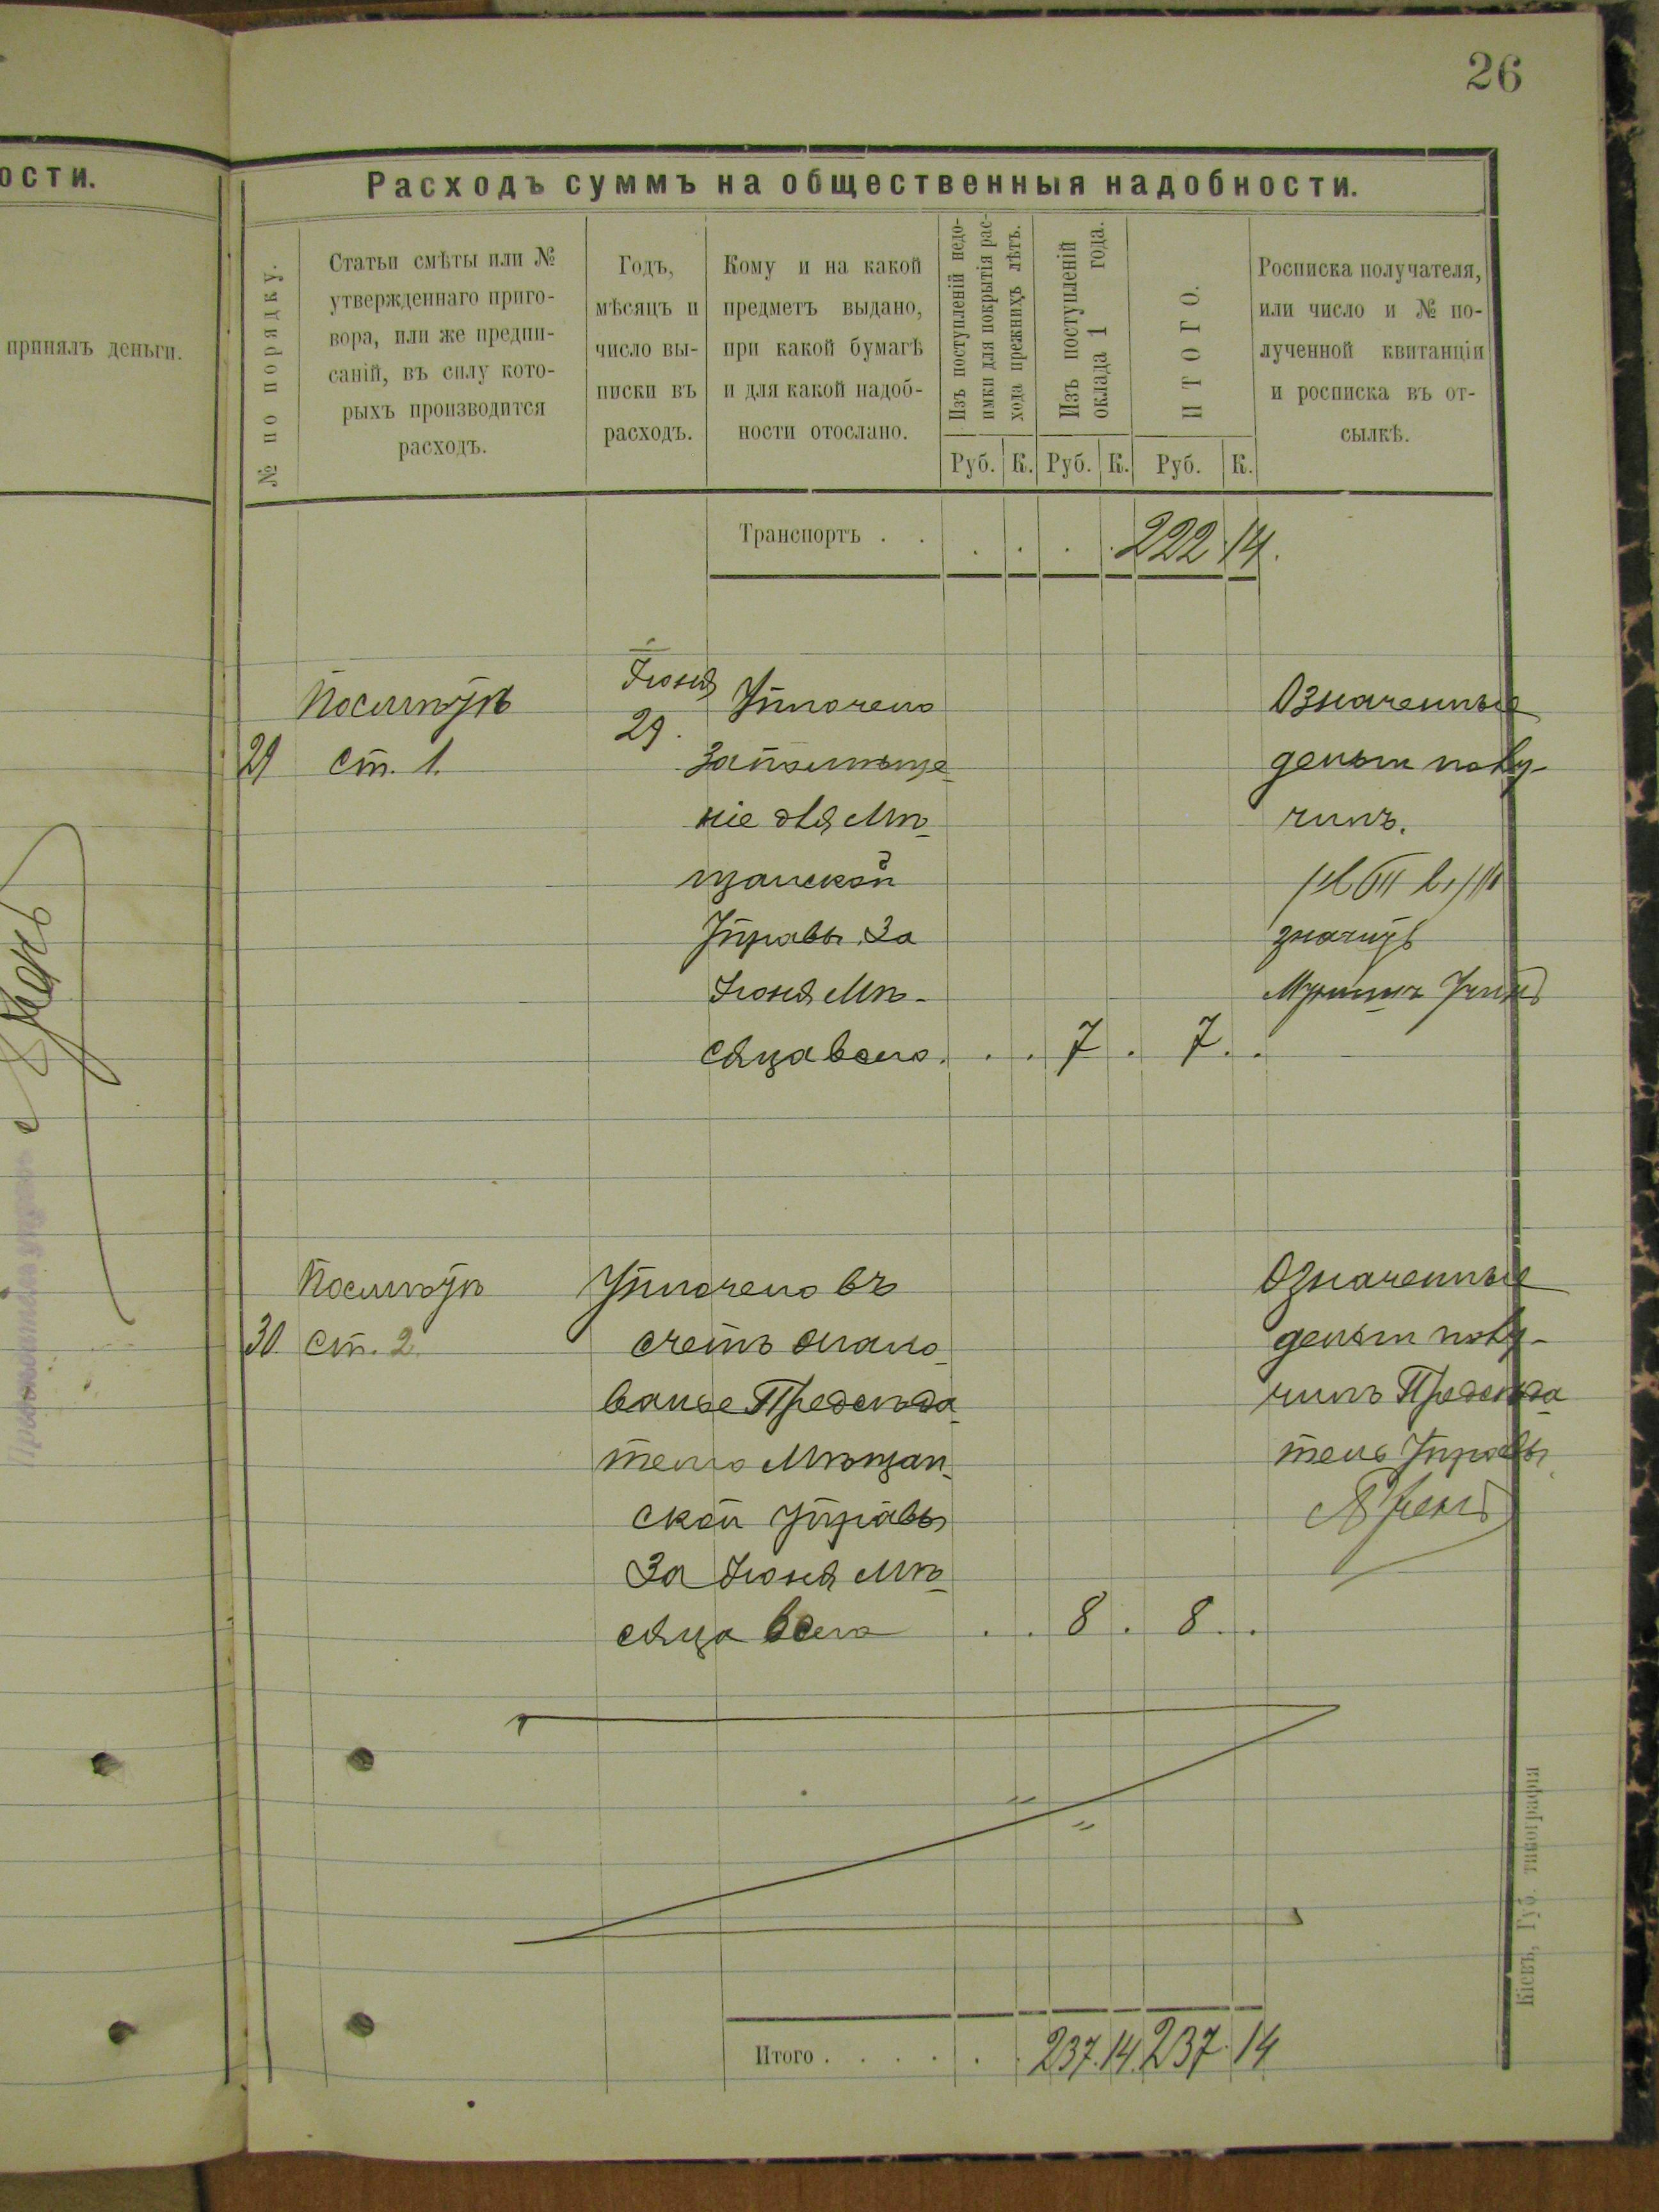 26
ости.
принялъ деньги.
Расходъ суммъ на общественныя надобности.
№ по порядку.
Статьи смѣты или №
утвержденнаго приго-
вора, или же предпи-
саній, въ силу кото-
рыхъ производится
расходъ.
Годъ,
мѣсяцъ и
число вы-
писки въ
расходъ.
Кому и на какой
предметъ выдано,
при какой бумагѣ
и для какой надоб-
ности отослано.
Изъ поступленій недо-
имки для покрытія рас-
хода прежнихъ лѣтъ.
Изъ поступленій
оклада 1 года.
ИТОГО.
Росписка получателя,
или число и № по-
лученной квитанціи
и росписка въ от-
сылкѣ.
Руб. К. Руб. К. Руб. К.
Транспортъ . . . . . . 222. 14.
29
Посмѣтѣ
ст. 1.
Іюня
29.
Уплочено
запомѣще-
ніе для Мѣ-
щанской
Управы. За
Іюня Мѣ-
сяца всего. . . 7 . 7. .
Означенные
деньги полу-
чилъ.
значитъ
30.
Посмѣтѣ
ст. 2.
Уплочено въ
счетъ
ванье Предсѣда-
телю Мѣщан-
ской Управы
За Іюня Мѣ-
сяца всего . . 8 . 8 . .
Означенные
деньги полу-
чилъ Предсѣда-
тель Управы
Итого . . . . . . 237. 14. 237. 14
Кіевъ, Губ. типографія